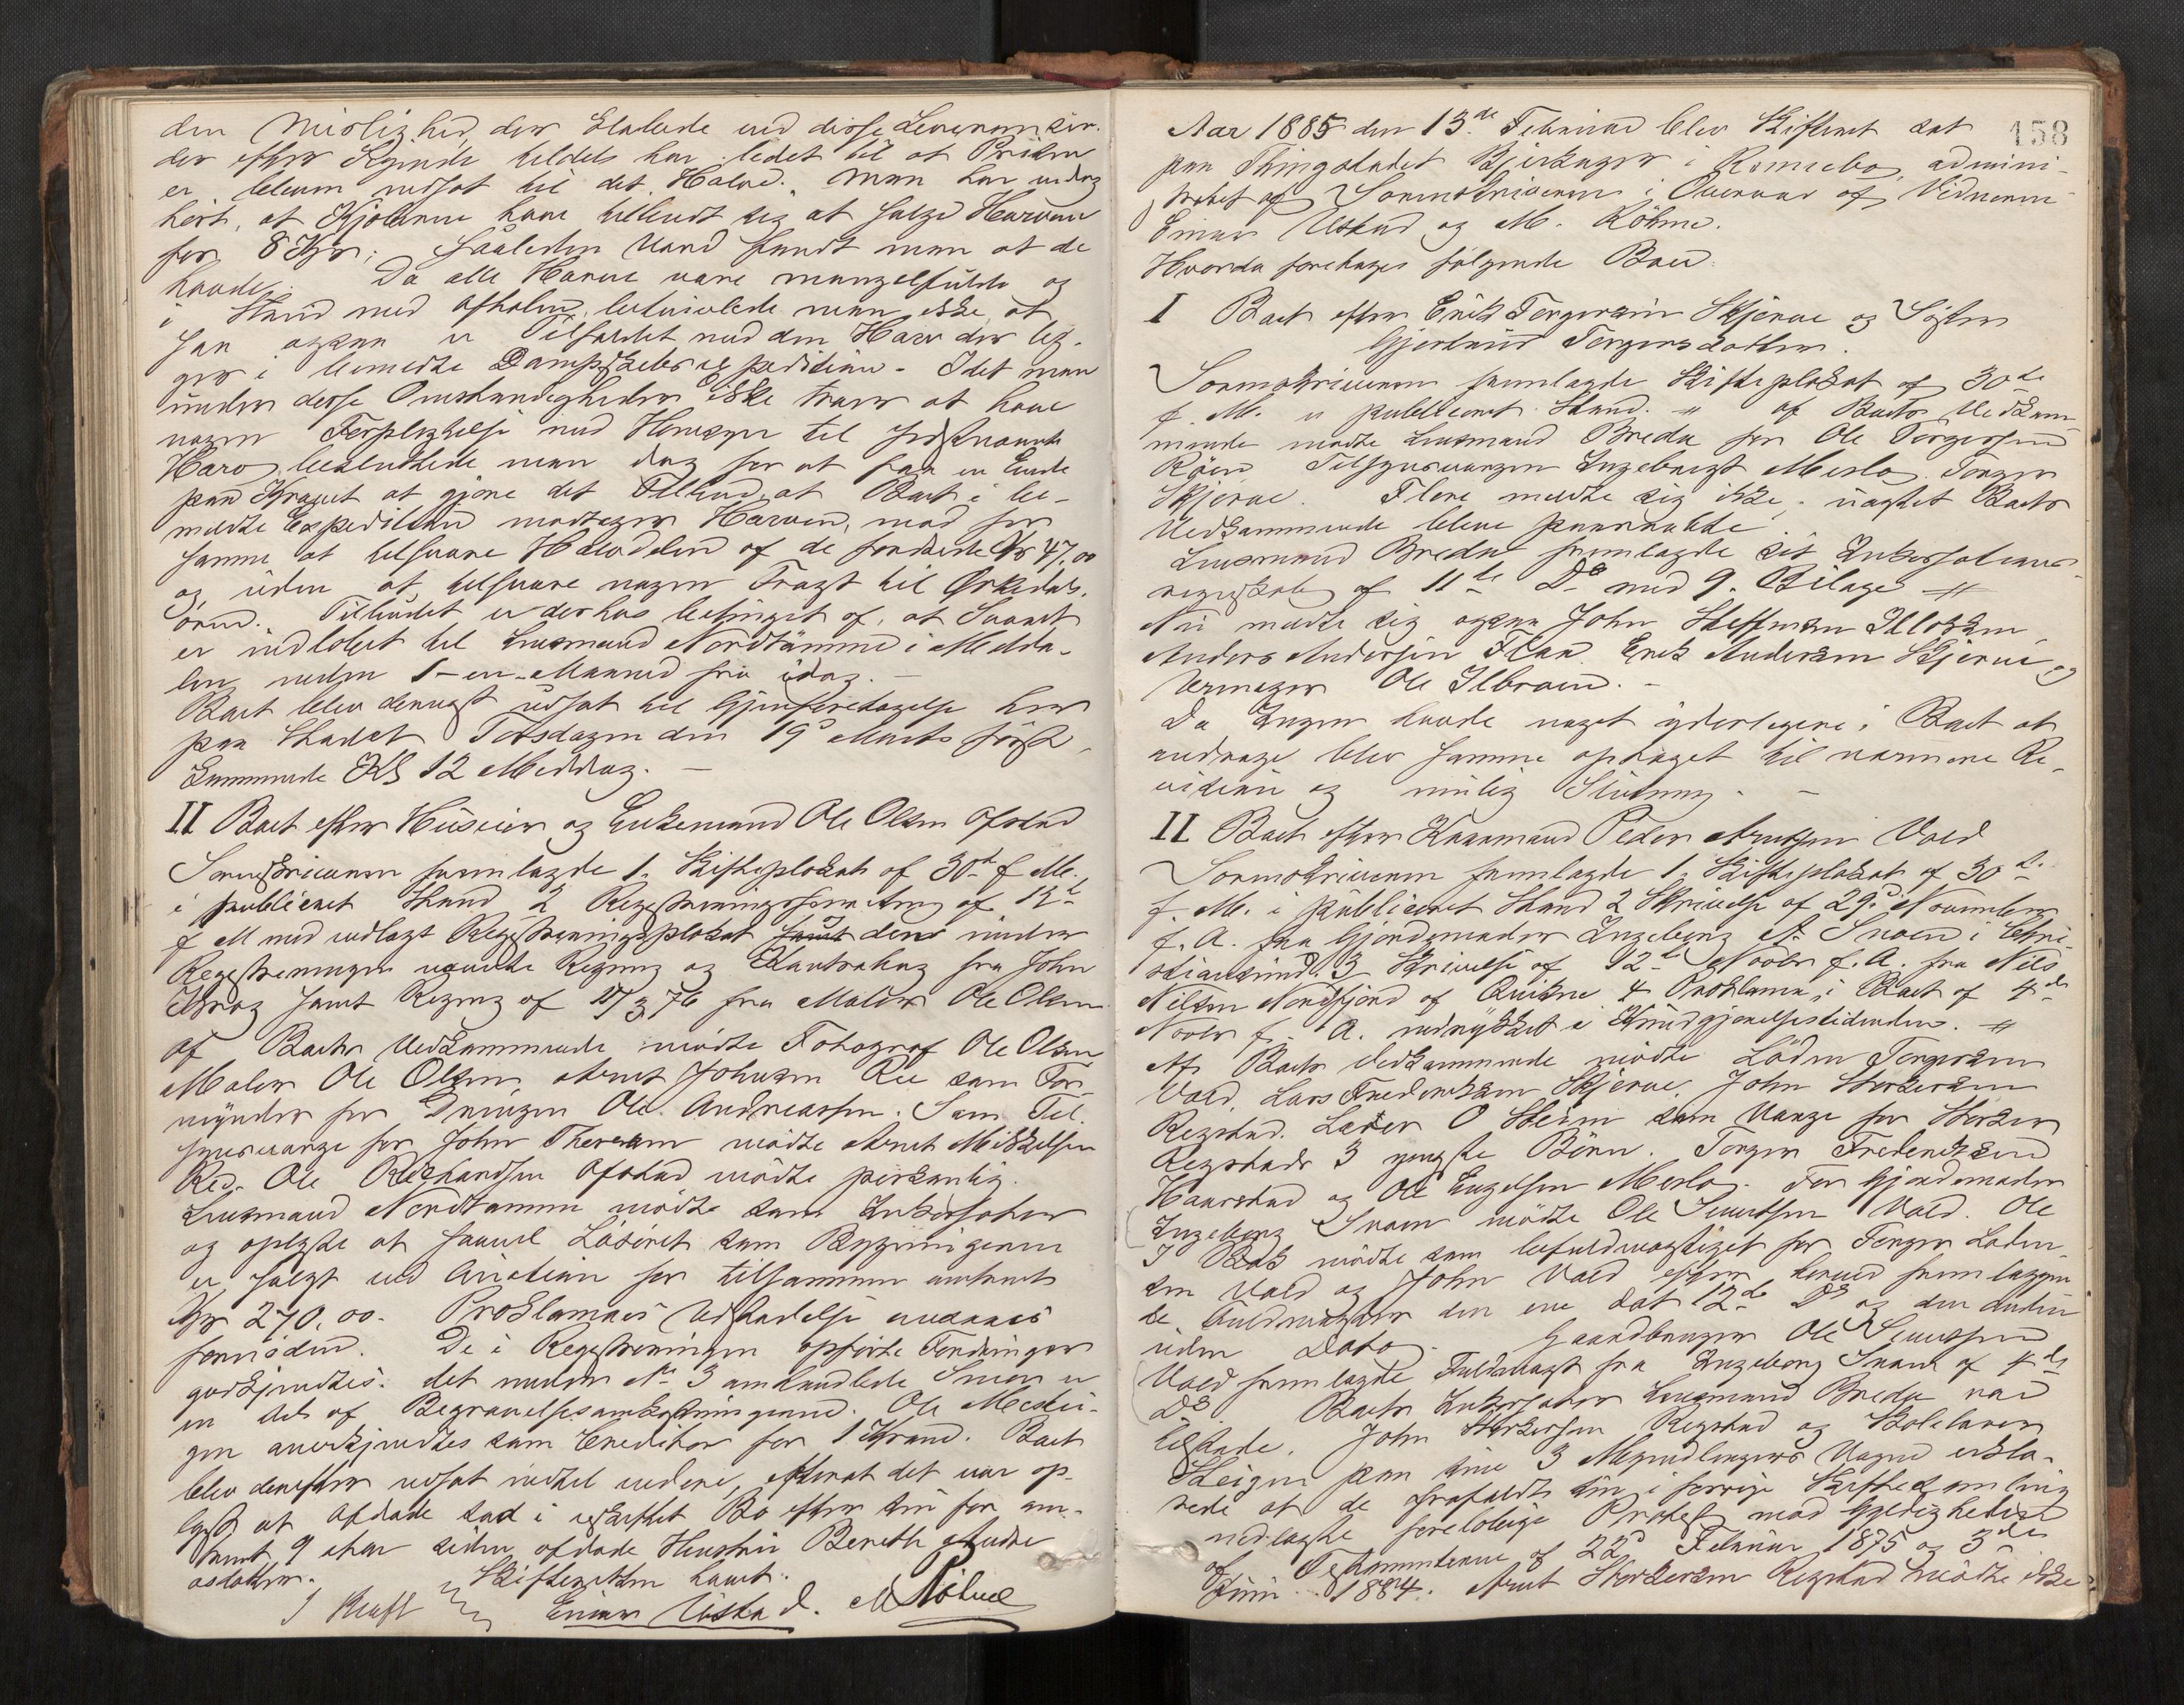 den Mislighed der Klalede ved disse Leverancer.
der efter Sigende tildels har ledet til at Prisen
er bleven nedsat til det Halve. Man har endog
hört, at Kjöberne have tilbudt sig at sælge Harven
for 8 Kr; saaledes Vand fandt man at de
havde. Da alle Harve vare mangelfulde og
i Stand med Aftalen, betvivlede man ikke, at
saa ogsaa er Tilfældet med den Harv der lig-
ger i bemeldte Dampskibsexpedition. Idet man
under disse Omstændigheder ikke troer at have
nogen Forpligtelse med Hensyn til sidstnævnte
Harv, besluttede man dog for at faa en Ende
paa Kravet at gjøre det Tilbud, at Boet i be-
meldte Expedition modtager Harven, mod for
samme at tilsvare Halvdelen af de fordrede Kr 47,00
og uden at tilsvare nogen Fragt til Orkedals-
ören. Tilbudet er derhos betinget af, at Svaret
er indløbet til Lensmand Nordtömme i Melda-
len inden 1-en-Maaned fra idag.
Boet blev dernæst udsat til Gjenforetagelse her
paa Stedet Torsdagen den 19d Marts först-
kommende Kl 12 Middag. —
II Boet efter Huseier og Enkemand Ole Olsen Ofstad
Sorenskriveren fremlagde 1. Skifteplakat af 30te f. M.
i publiceret Stand 2 Registreringsforretning af 12te
f M med vedlagt Registreringsplakat samt den under
Registreringen nævnte Regning og Kontrakt fra John
Krog samt Regning af 11/3 76 fra Maler Ole Olsen
Af Boets Vedkommende mödte Fotograf Ole Olsen
Maler Ole Olsen, Arnt Johnsen Ree som For-
mynder for Drengen Ole Andreassen. Som Til-
synsværge for John Thoresen mödte Arnt Mikkelsen
Ree. Ole Rikhardsen Ofstad mödte personlig.
Lensmand Nordtømme mödte som Inkassator
og oplyste at saavel Lösöret som Bygningerne
er solgt ved Auction for tilsammen omtrent
Kr 270,00. Proklamaets Udstedelse ansaaes
fornöden. De i Registreringen opförte Fordringer
godkjendtes. Det under No 3 omhandlede Smör er
en Del af Begravelsesomkostningerne. Ole Mestei-
gen anerkjendtes som Creditor for 1 Krone. Boet
blev derefter udsat indtil videre, efterat det var op-
lyst at Afdøde sad i uskiftet Bo efter sin for om-
trent 9 Aar siden afdøde Hustru Bereth Andre
asdatter. Skifteretten hævet.
J Kraft Einar Ustad. M Röhme
158
Aar 1885 den 13de Februar blev Skifteret sat
paa Thingstedet Bjerkager i Rennebo, admini-
streret af Sorenskriveren i Overvær af Vidnerne
Einar Ustad og M. Röhme.
Hvorda foretages følgende Boer.
I Boet efter Erik Torgersen Skjerve og Söster
Gjertrud Torgersdatter.
Sorenskriveren fremlagde Skifteplakat af 30te
f. M. i publiceret Stand. — Af Boets Vedkom-
mende mödte Lensmand Bredu for Ole Torgersen
Röen, Tilsynsværgen Ingebrigt Meslo, Torger
Skjerve. Flere meldte sig ikke, uagtet Boets
Vedkommende bleve paaraabte.
Lensmand Bredu fremlagde sit Inkassations-
regnskab af 11te Ds med 9 Bilage —
Nu meldte sig ogsaa John Steffensen Illøkken,
Anders Andersen Flaa, Erik Andersen Skjerve og
Vermager Ole Ilbroen. —
Da Ingen havde noget yderligere i Boet at
andrage blev samme optaget til nærmere Re-
vision og mulig Slutning. —
II Boet efter Kaarmand Peder Arntsen Vold
Sorenskriveren fremlagde 1. Skifteplakat af 30te
f. M. i publiceret Stand 2 Skrivelse af 29d November
f. A. fra Gjordemoder Ingeborg A. Snoen i Chri-
stiansund. 3 Skrivelse af 12te Novbr f. A. fra Nils
Nilsen Nordfjord af Qvikne 4 Proklama i Boet af 4de
Novbr f. A. indrykket i Kundgjørelsestidenden. —
Af Boets Vedkommende mödte Loden Torgersen
Vold, Lars Fredriksen Skjerve, John Storkersen
Regstad. Lærer O Steien som Værge for Storker
Regstads 3 yngste Börn. Torger Fredriksen
Haarstad og Ole Engelsen Meslo. For Gjordemoder
Ingeborg Snoen mödte Ole Sivertsen Vold. Ole
J Bak mödte som befuldmægtiget for Torger Loden-
sen Vold og John Vold efter herved fremlagte
to Fuldmagter den ene dat 12te Ds og den anden
uden Dato. Gaardbruger Ole Sivertsen
Vold fremlagde Fuldmagt fra Ingeborg Snoen af 4de
Ds. Boets Inkassator Lensmand Bredu var
tilstede. John Storkersen Regstad og Skolelærer
Steien paa sine 3 Myndlingers Vegne erklæ-
rede at de frafaldt sin i forrige Skiftesamling
nedlagte foreløbige Protest mod Gyldigheden
af Testamenterne af 22d Februar 1875 og 3die
Juni 1884. Arnt Storkersen Regstad mödte ikke